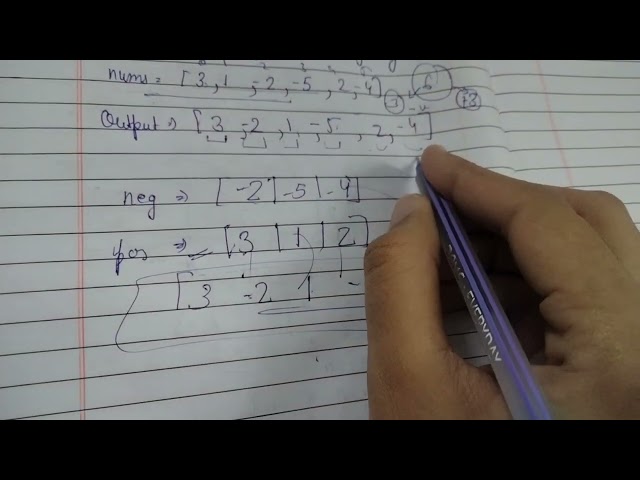 nums = [3, 1, -2, -5, 2, -4] 6
3 +3
Output => [3, -2, 1, -5, 2, -4]
neg => [-2 | -5 | -4]
pos => [3 | 1 | 2]
[3 -2 1 -
EVERYDAY